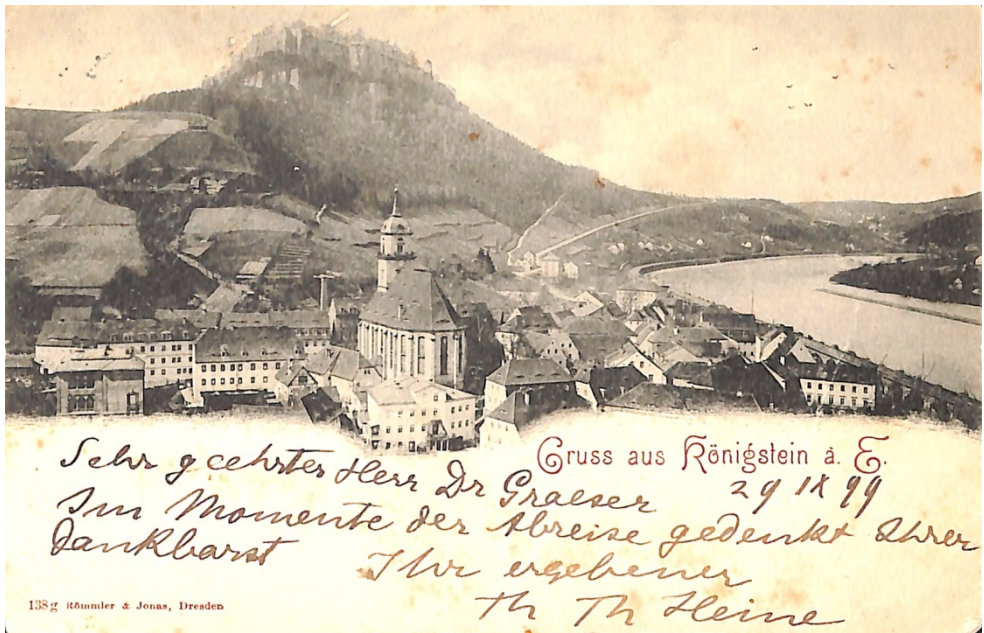 Gruss aus Königstein a. E.
Sehr geehrter Herr Dr Graeser 29 IX 99
Im Momente der Abreise gedenkt Ihrer
dankbarst Ihr ergebener
Th Th Heine
138g Römmler & Jonas, Dresden